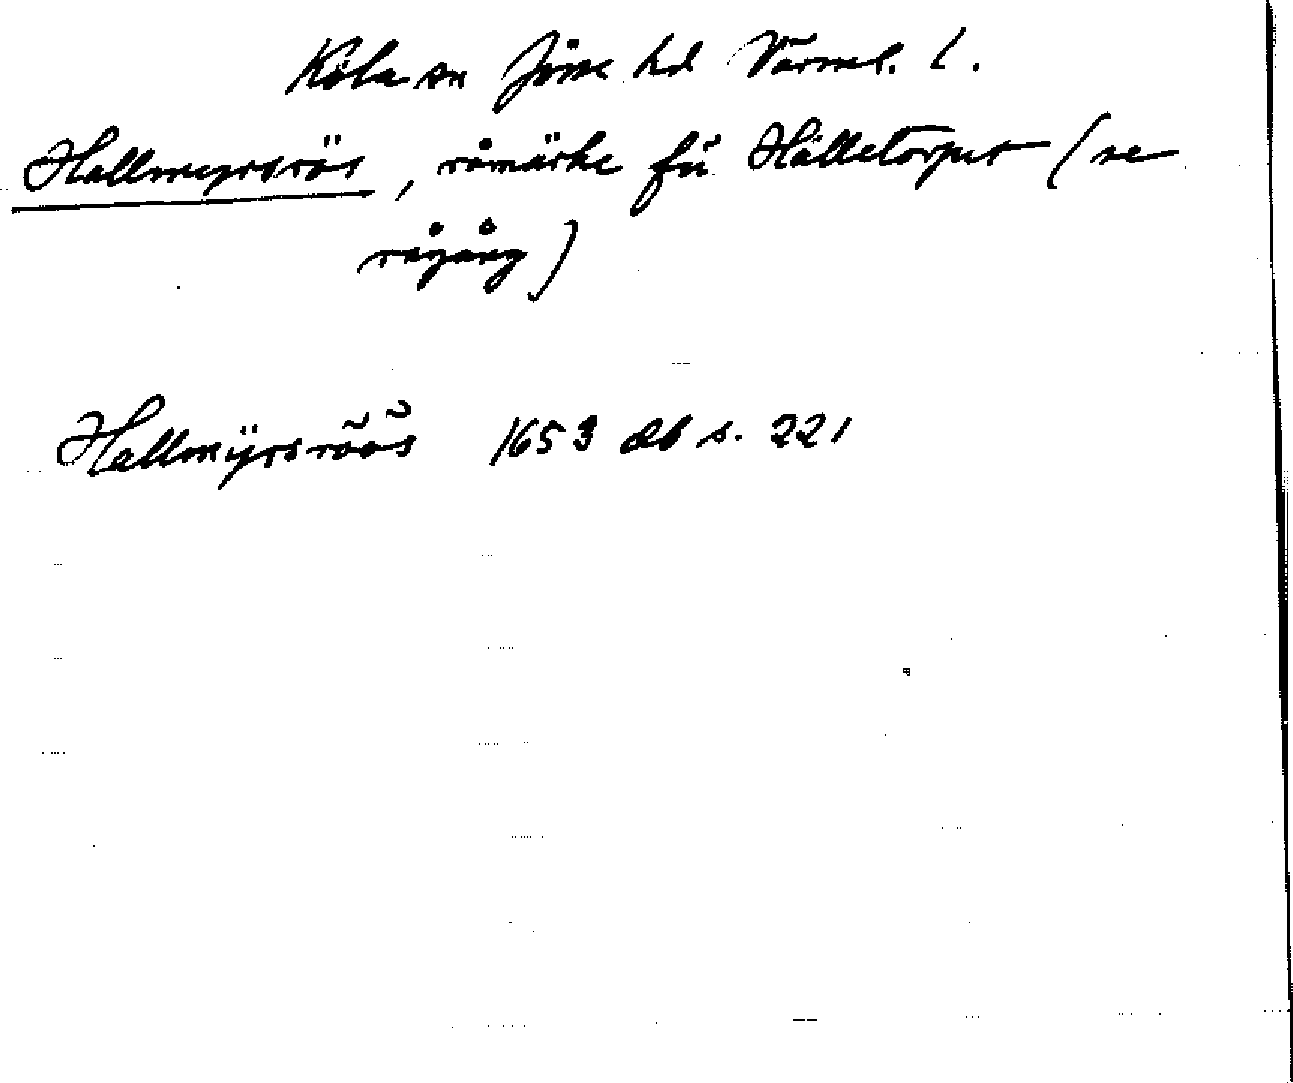 Köla sn Jösse hd Värml. l.
Hallmyrsrös, råmärke för Hälletorpet (se
rågång)
Hallmÿrsröös 1653 db s. 221